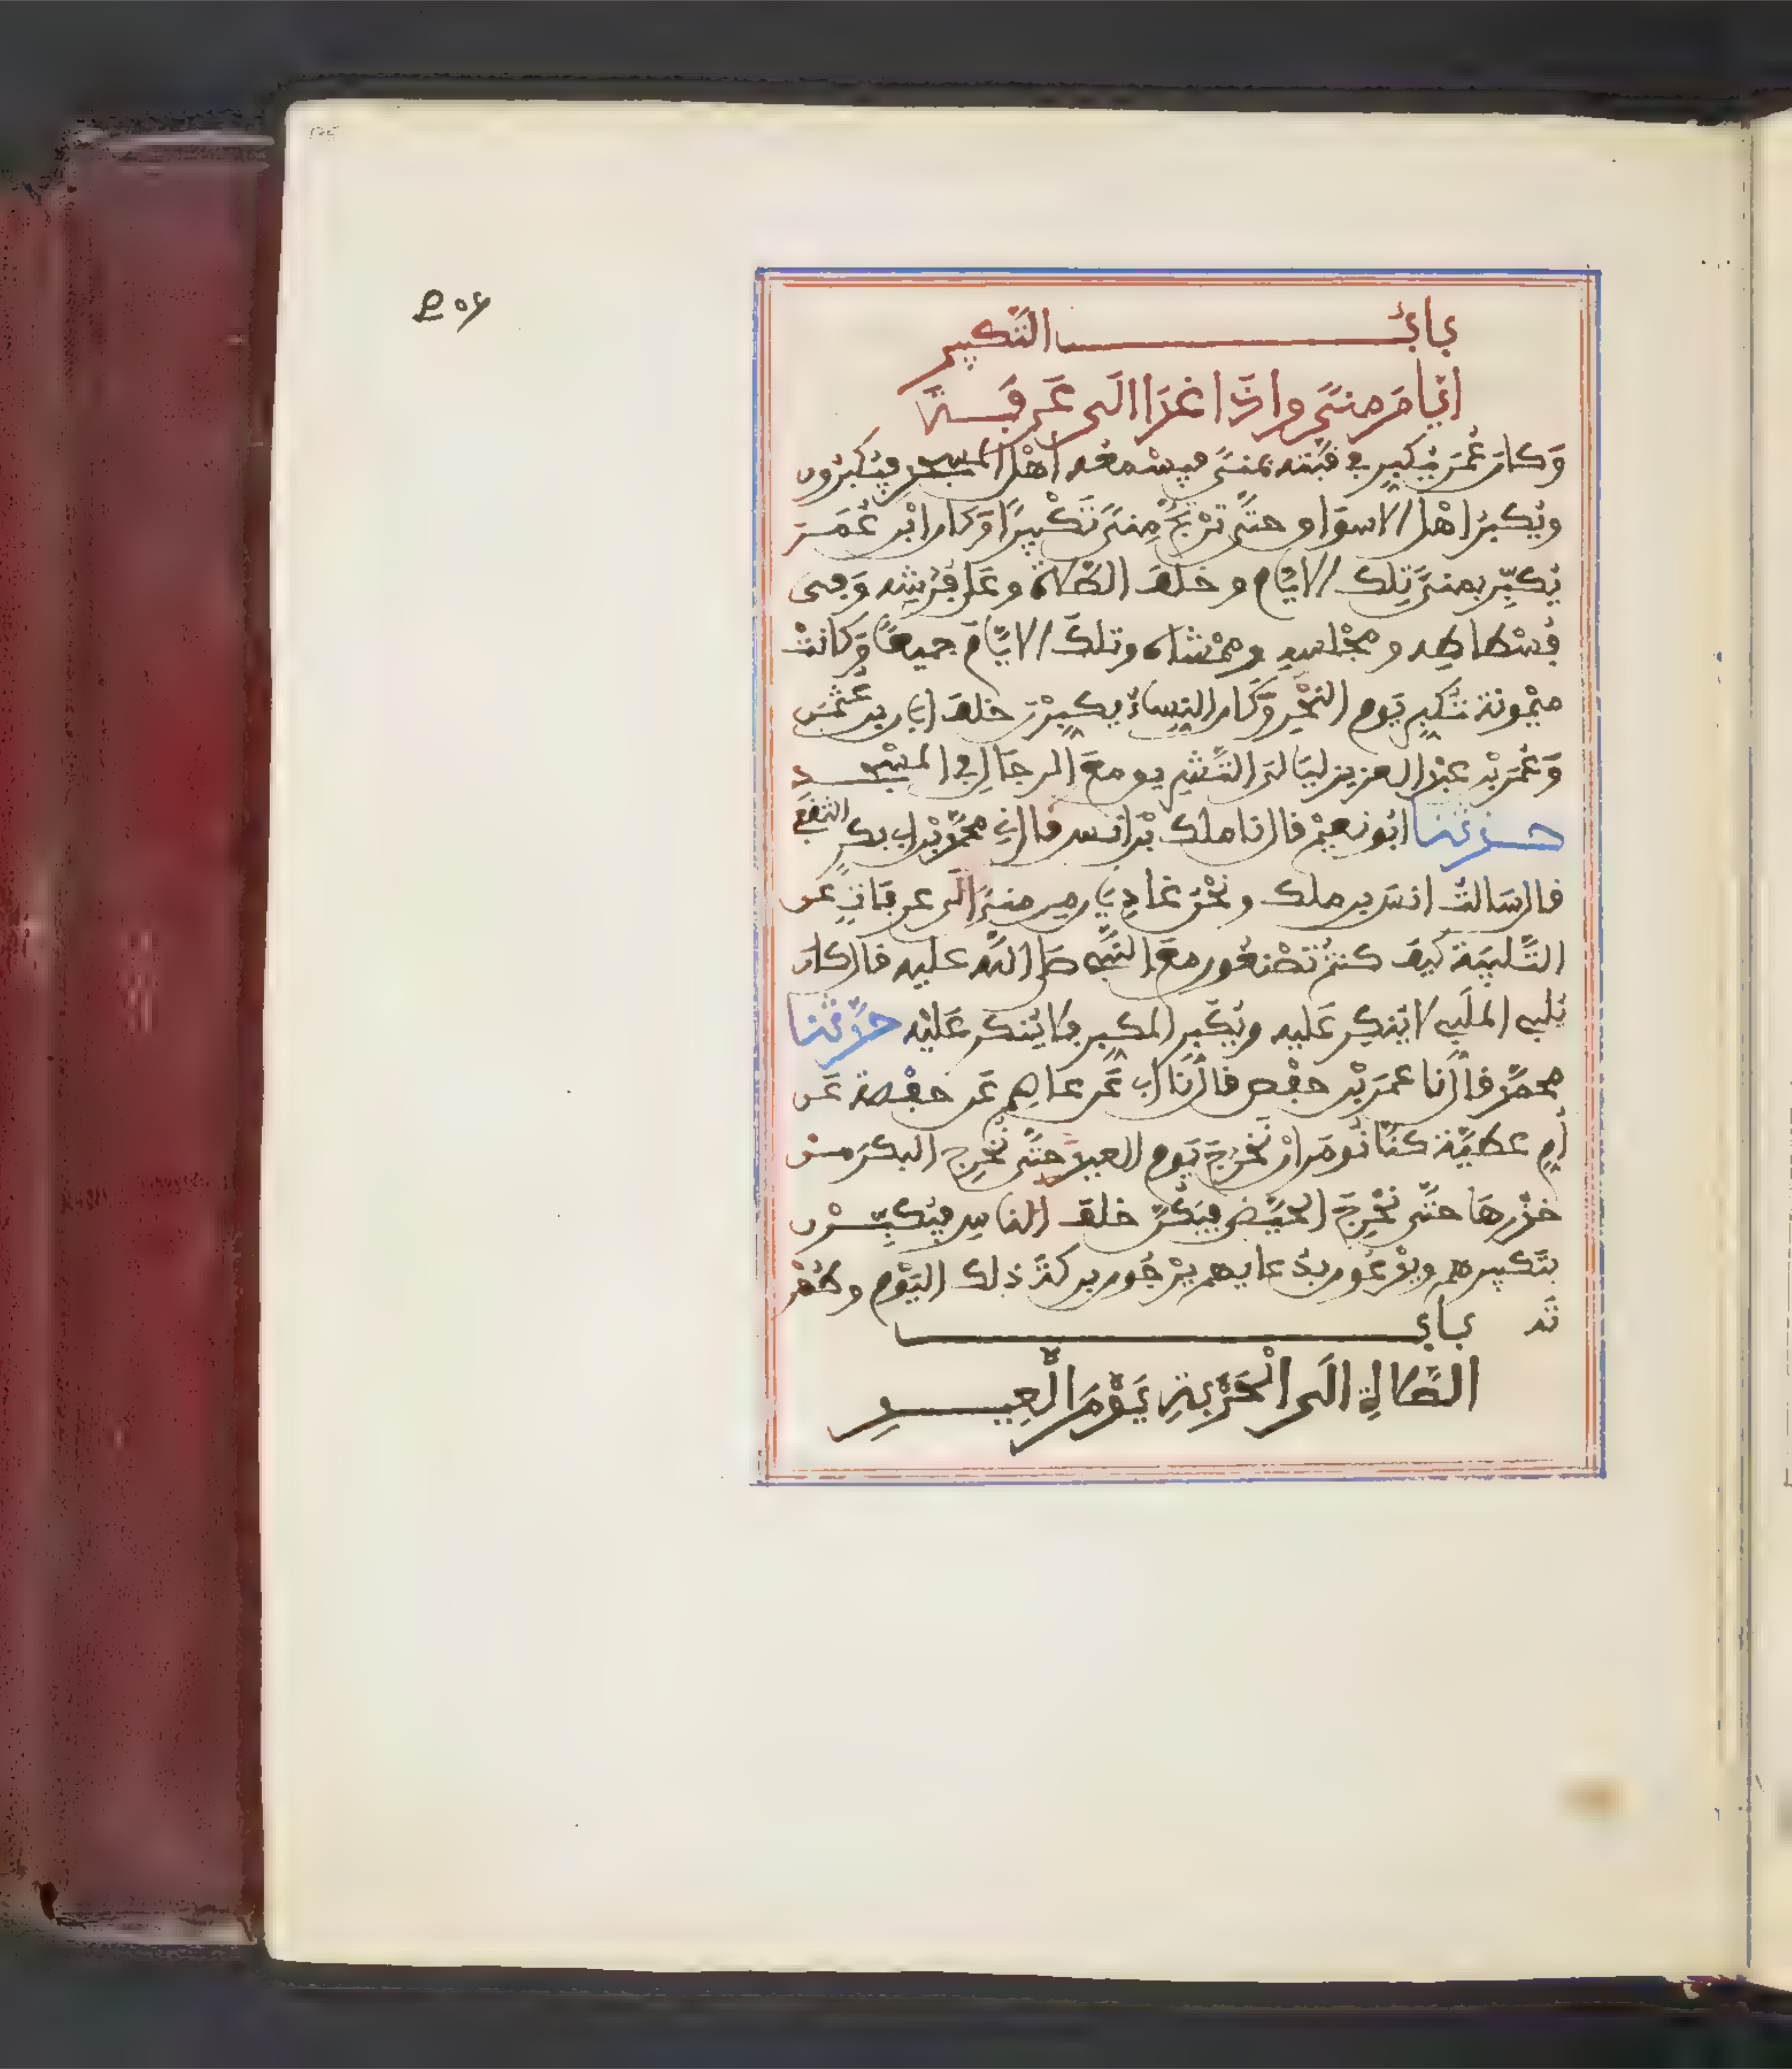 باب التكبير
ايام منى واذا غدا الى عرفة
وكان عمر يكبر في قبته بمنى فيسمعه اهل المسجد فيكبرون
ويكبر اهل الاسواق حتى ترتج منى تكبيرا وكان ابن عمر
يكبر بمنى تلك الايام وخلف الصلاة وعلى فرشه وفى
فسطاطه ومجلسه وممشاه وتلك الايام جميعا وكانت
ميمونة تكبر يوم النحر وكان النساء يكبرن خلف ابان بن عثمن
وعمر بن عبد العزيز ليالى التشريق مع الرجال في المسجد
حدثنا ابو نعيم قال نا ملك بن انس قال ني محمد بن ابي بكر الثقفي
قال سالت انس بن ملك ونحن غاديان من منى الى عرفات عن
التلبية كيف كنتم تصنعون مع النبي صلى الله عليه قال كان
يلبي الملبي لا ينكر عليه ويكبر المكبر فلا ينكر عليه حدثنا
محمد قال نا عمر بن حفص قال نا ابي عن عاصم عن حفصة عن
ام عطية كنا نومر ان نخرج يوم العيد حتى نخرج البكر من
خدرها حتى نخرج الحيض فيكن خلف الناس فيكبرن
بتكبيرهم ويدعون بدعايهم يرجون بركة ذلك اليوم وطهر
ته باب
الصلاة الى الحربة يوم العيد